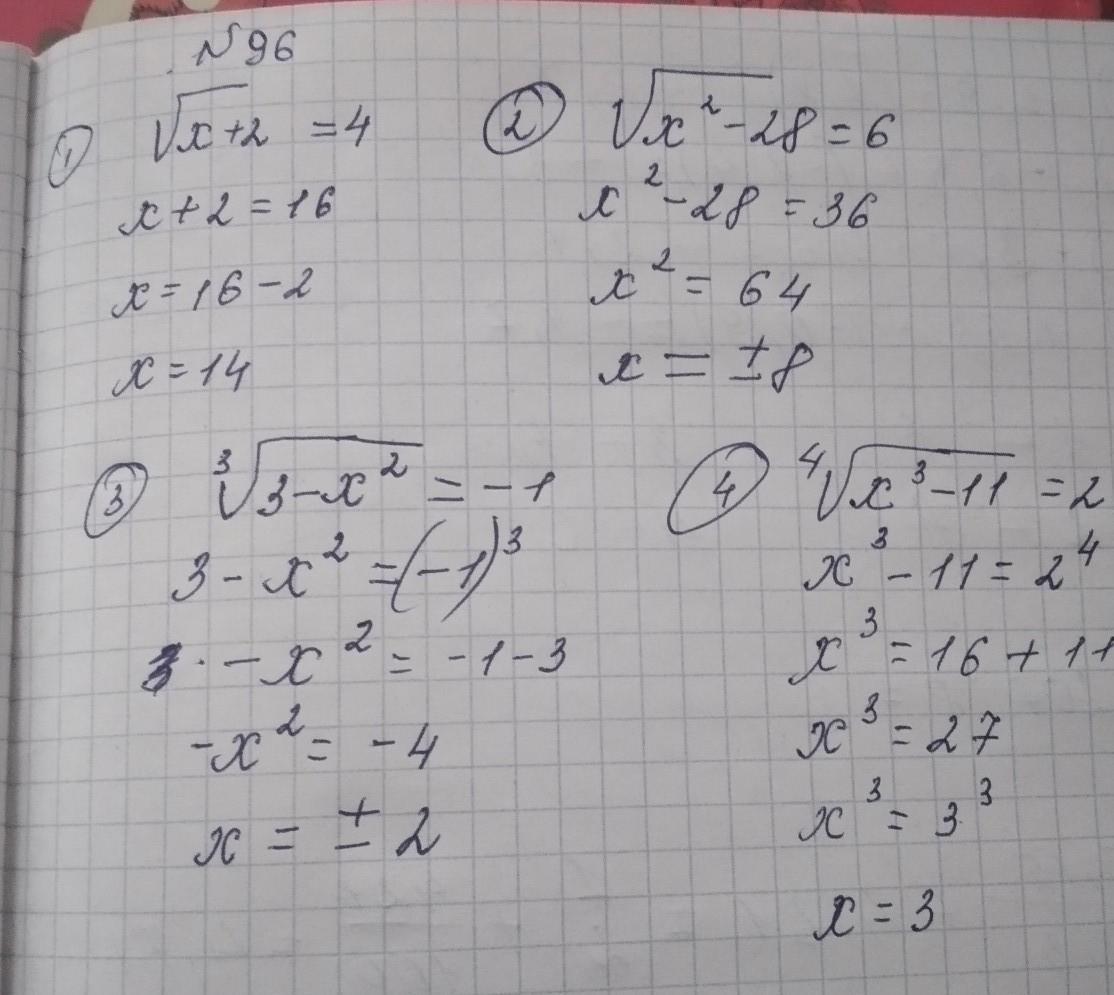 №96
① √x+2 = 4
x+2=16
x=16-2
x=14
② √x²-28=6
x²-28=36
x²=64
x=±8
③ ³√3-x²=-1
3-x²=(-1)³
-x²=-1-3
-x²=-4
x=±2
④ ⁴√x³-11=2
x³-11=2⁴
x³=16+11
x³=27
x³=3³
x=3